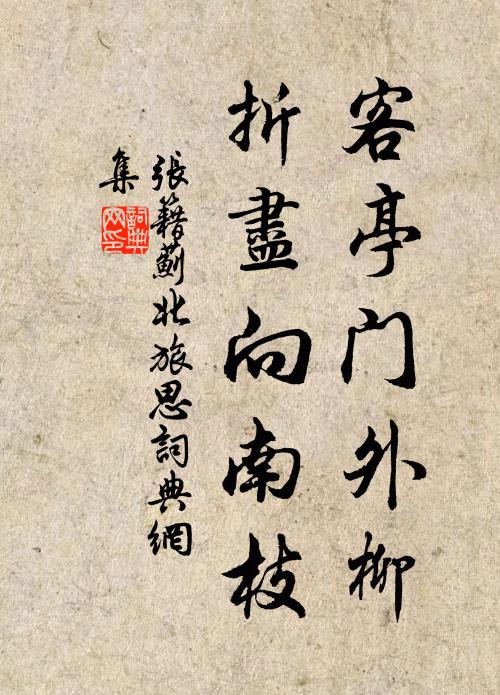 客亭门外柳
折盡向南枝
張籍薊北旅思詞典網
集
詞典
网印